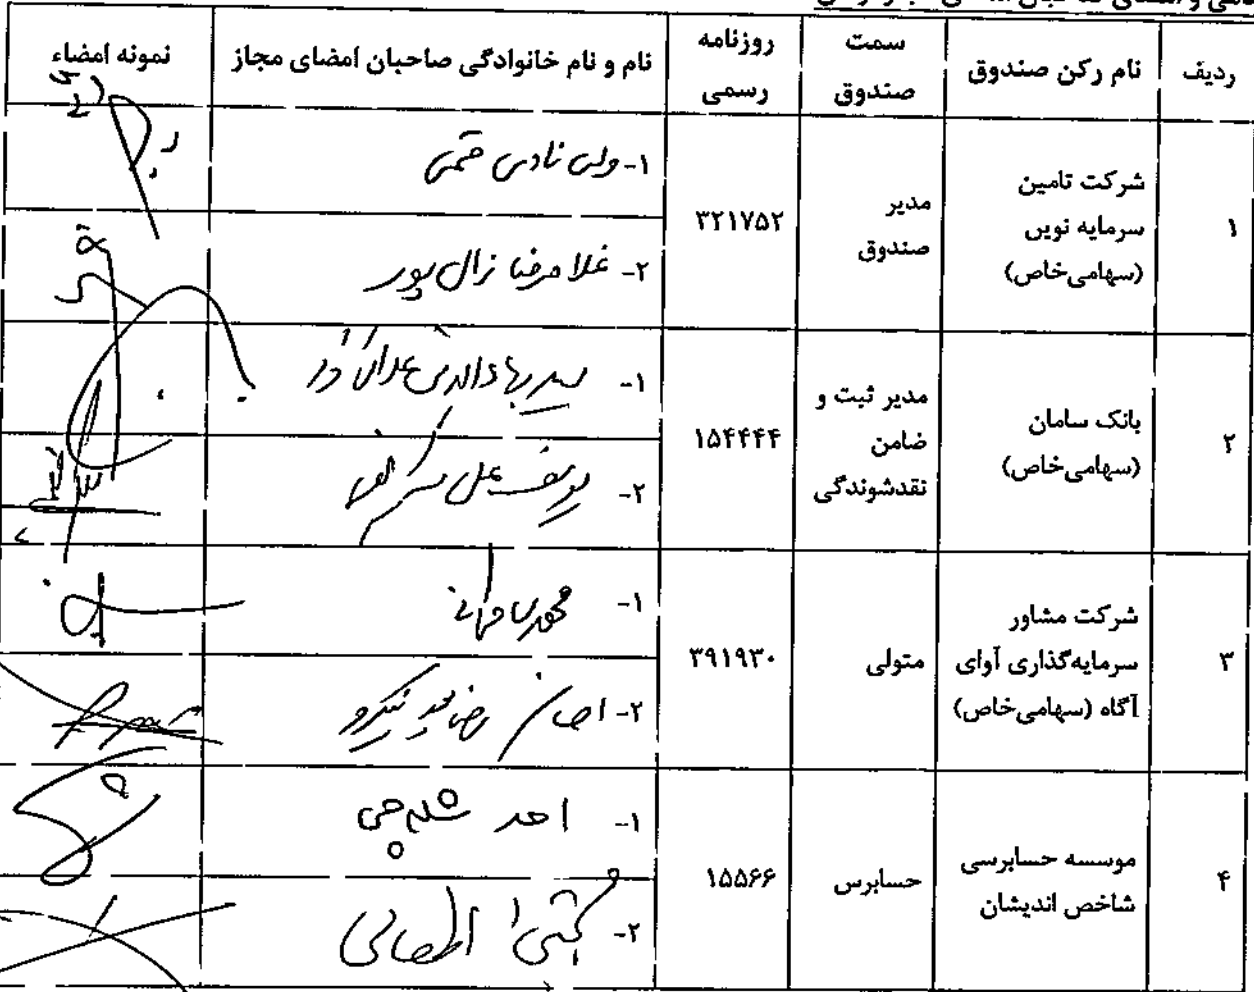 ردیف
نام رکن صندوق
سمت
صندوق
روزنامه
رسمی
نام و نام خانوادگی صاحبان امضای مجاز
نمونه امضاء
۱
شرکت تامین
سرمایه نوین
(سهامی‌خاص)
مدیر
صندوق
۳۲۱۷۵۲
۱- ولی نادی قمی
۲- غلامرضا زال پور
۲
بانک سامان
(سهامی‌خاص)
مدیر ثبت و
ضامن
نقدشوندگی
۱۵۴۴۴۴
۱- سید بهاءالدین
۲-
۳
شرکت مشاور
سرمایه‌گذاری آوای
آگاه (سهامی‌خاص)
متولی
۳۹۱۹۳۰
۱- محمدرضا
۲- احسان رضاپور نیکرو
۴
موسسه حسابرسی
شاخص اندیشان
حسابرس
۱۵۵۶۶
۱- احد شله‌چی
۲-